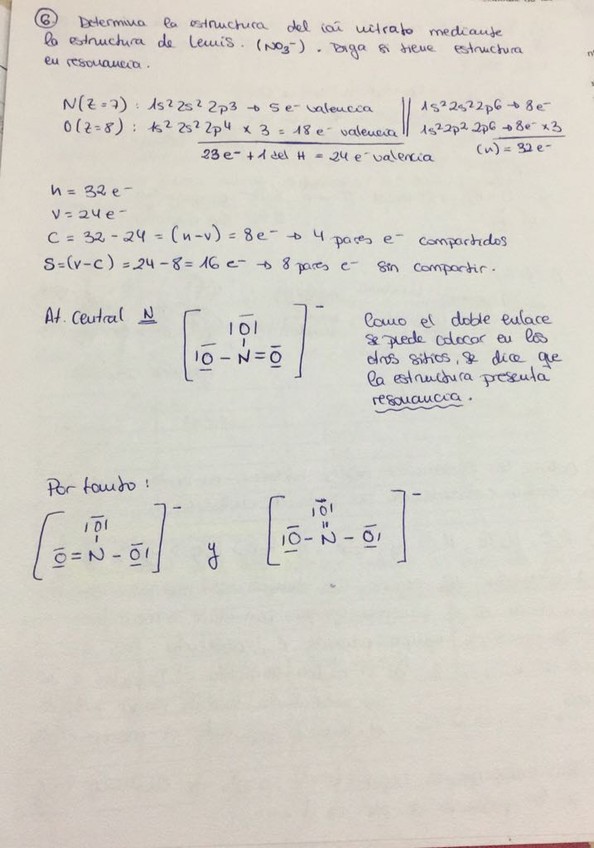 ⑥ Determina la estructura del ión nitrato mediante
la estructura de Lewis. (NO3⁻). Diga si tiene estructura
en resonancia.
N(Z=7): 1s² 2s² 2p3 → 5 e⁻ valencia || 1s² 2s² 2p6 → 8e⁻
O(Z=8): 1s² 2s² 2p⁴ × 3 = 18 e⁻ valencia || 1s² 2p² 2p6 → 8e⁻ × 3
23 e⁻ + 1 del H = 24 e⁻ valencia (n) = 32 e⁻
n = 32 e⁻
v = 24 e⁻
C = 32 - 24 = (n-v) = 8e⁻ → 4 pares e⁻ compartidos
S = (v-c) = 24 - 8 = 16 e⁻ → 8 pares e⁻ sin compartir.
At. Central N
[ |O| |O - N = O ]⁻
Como el doble enlace
se puede colocar en los
otros sitios, se dice que
la estructura presenta
resonancia.
Por tanto:
[ |O| O = N - O| ]⁻ y [ |O| |O - N - O| ]⁻